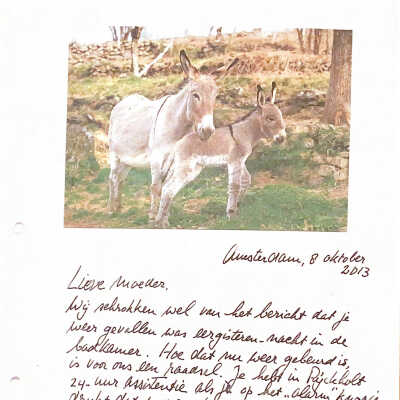 Amsterdam, 8 oktober
2013
Lieve moeder,
Wij schrokken wel van het bericht dat je
weer gevallen was eergisteren-nacht in de
badkamer. Hoe dat nu weer gebeurd is
is voor ons een raadsel. Je hebt in Rijckholt
24-uur assistentie als je op het „alarm"